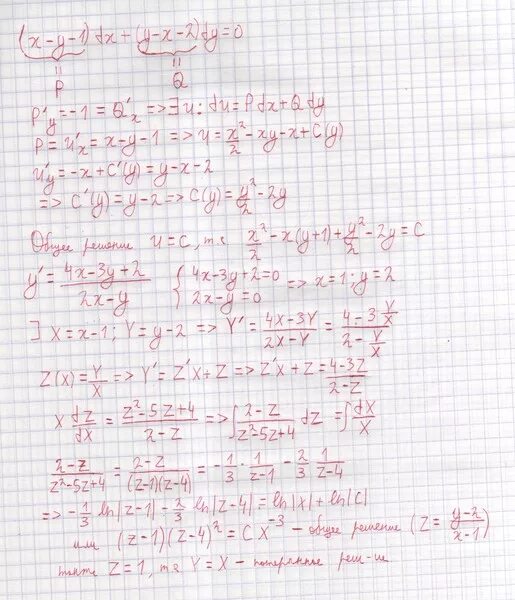 (x-y-1)dx+(y-x-2)dy=0
P Q
P'y=-1=Q'x => ∃ u: du=Pdx+Qdy
P=u'x=x-y-1 => u=x²/2-xy-x+C(y)
u'y=-x+C'(y)=y-x-2
=> C'(y)=y-2 => C(y)=y²/2-2y
Общее решение u=C, т.е. x²/2-x(y+1)+y²/2-2y=C
y'=(4x-3y+2)/(2x-y) { 4x-3y+2=0 2x-y=0 => x=1; y=2
] X=x-1; Y=y-2 => Y'=(4X-3Y)/(2X-Y)=(4-3Y/X)/(2-Y/X)
Z(X)=Y/X => Y'=Z'X+Z => Z'X+Z=(4-3Z)/(2-Z)
X dZ/dX=(Z²-5Z+4)/(2-Z) => ∫(2-Z)/(Z²-5Z+4) dZ=∫dX/X
(2-Z)/(Z²-5Z+4)=(2-Z)/((Z-1)(Z-4))=-1/3·1/(Z-1)-2/3 1/(Z-4)
=> -1/3 ln|Z-1|-2/3 ln|Z-4|=ln|X|+ln|C|
или (Z-1)(Z-4)²=CX⁻³ - общее решение (Z=(y-2)/(x-1))
также Z=1, т.е. Y=X - потерянное реш-ие.